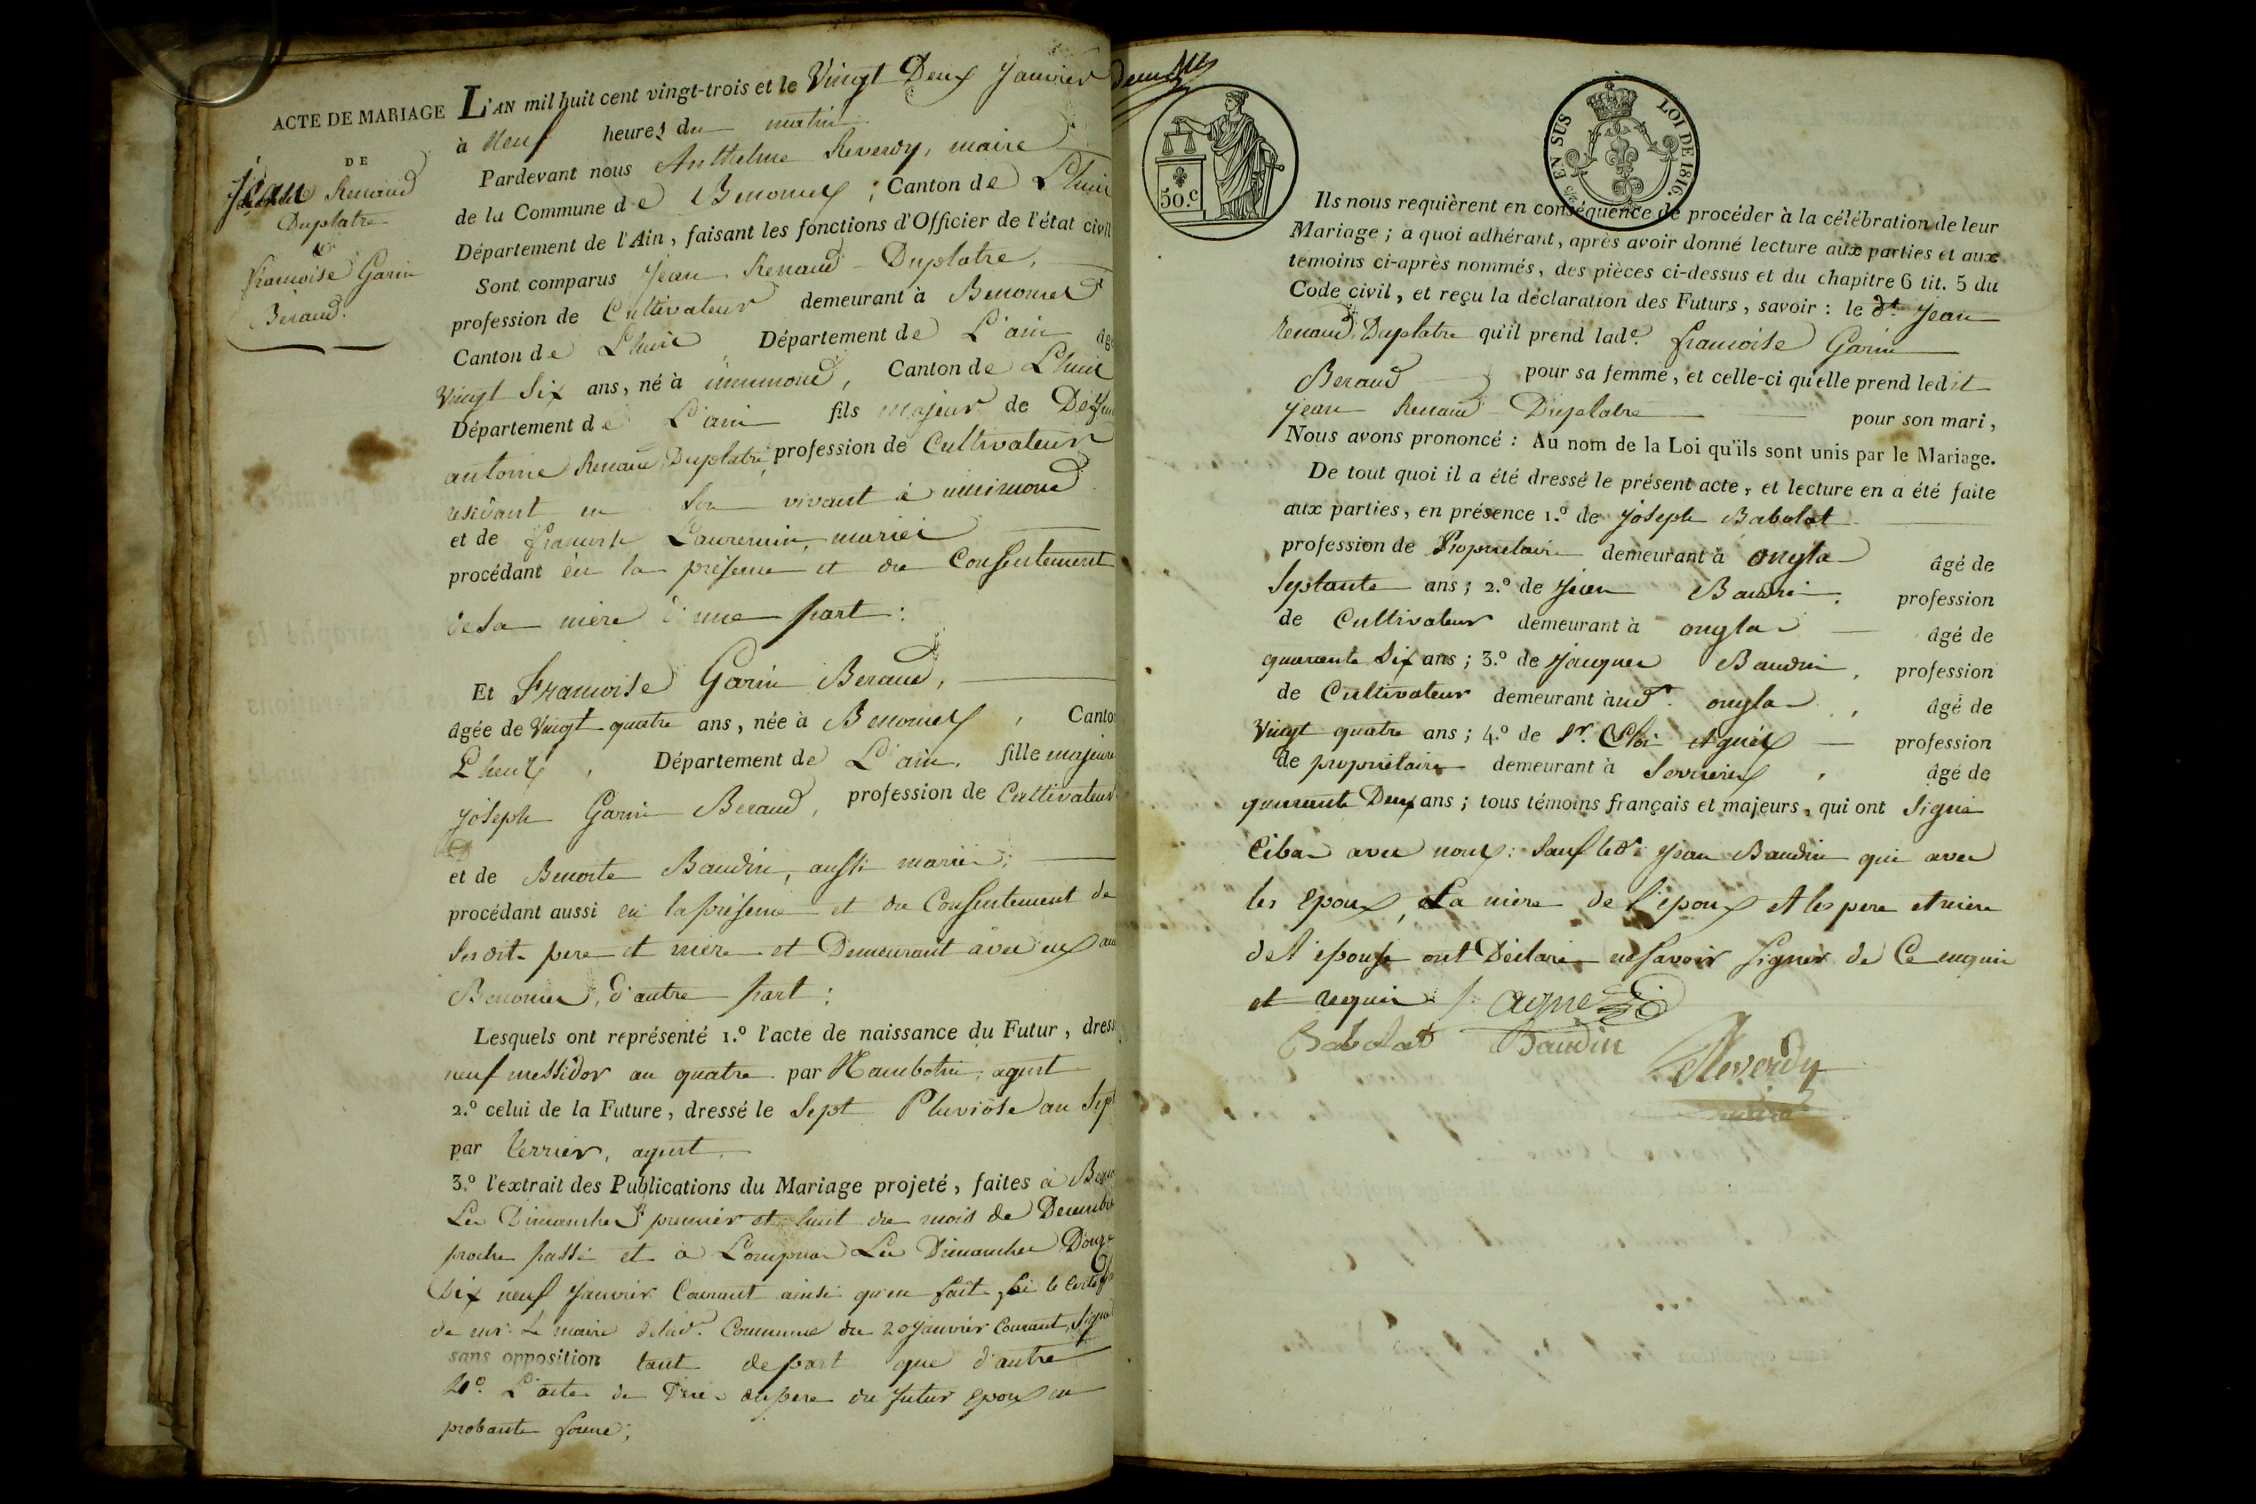 ACTE DE MARIAGE
DE
Jean Renaud
Duplatre
&
francoise Garin
Beraud.
L'AN mil huit cent vingt-trois et le Vingt Deux Janvier
à Neuf heures du matin
Pardevant nous Anthelme Reverdy, maire
de la Commune de Benonces, Canton de Lhuis
Département de l'Ain, faisant les fonctions d'Officier de l'état civil
Sont comparus Jean Renaud Duplatre,
profession de Cultivateur demeurant à Benonces
Canton de Lhuis Département de L'ain
Vingt Six ans, né à innimond, Canton de Lhuis
Département de L'ain fils majeur de
antoine Renaud Duplatre, profession de Cultivateur
residant en son vivant à innimond
et de francoise Laurencin, mariés
procédant en la présence et du Consentement
de sa mère d'une part:
Et Francoise Garin Beraud,
âgée de Vingt quatre ans, née à Benonces, Canton
Lhuis, Département de L'ain, fille majeure
joseph Garin Beraud, profession de Cultivateur
et de Benoite Baudin, aussi mariés;
procédant aussi en la présence et du Consentement de
ses dits pere et mère et Demeurant avec eux au
Benonces, d'autre part:
Lesquels ont représenté 1.º l'acte de naissance du Futur,
neuf messidor an quatre par Nambotin, agent
2.º celui de la Future, dressé le Sept Pluviôse an Sept
par Perrier, agent.
3.º l'extrait des Publications du Mariage projeté, faites à
Les Dimanches premier et huit du mois de Decembre
proche passé et à Lompnas Les Dimanches Douze
Dix neuf Janvier Courant ainsi qu'en fait foi le
de mr. Le maire deladᵉ. Commune du 20 janvier Courant,
sans opposition tant de part que d'autre
4º. L'acte de du pere du futur Epoux en
probante forme;
50.c
EN SUS
LOI DE 1816.
Ils nous requièrent en conséquence de procéder à la célébration de leur
Mariage; à quoi adhérant, après avoir donné lecture aux parties et aux
témoins ci-après nommés, des pièces ci-dessus et du chapitre 6 tit. 5 du
Code civil, et reçu la déclaration des Futurs, savoir: le dt. Jean
Renaud Duplatre qu'il prend lade. francoise Garin
Beraud pour sa femme, et celle-ci qu'elle prend ledit
Jean Renaud Duplatre pour son mari,
Nous avons prononcé: Au nom de la Loi qu'ils sont unis par le Mariage.
De tout quoi il a été dressé le présent acte, et lecture en a été faite
aux parties, en présence 1.º de Joseph Babolat
profession de Proprietaire demeurant à onglas âgé de
Septante ans; 2.º de Jean Baudin, profession
de Cultivateur demeurant à onglas âgé de
quarante Dix ans; 3.º de Jacques Baudin, profession
de Cultivateur demeurant à udt. onglas, âgé de
Vingt quatre ans; 4.º de Sr. profession
de proprietaire demeurant à Serrieres, âgé de
quarante Deux ans; tous témoins français et majeurs, qui ont Signé
Cibas avec nous: Sauf led. Jean Baudin qui avec
les Epoux, La mère de l'epoux et les pere et mère
de L'epouse ont Déclaré ne savoir signer de Ce enquis
et requis.
Babolat Baudin
Reverdy
maire